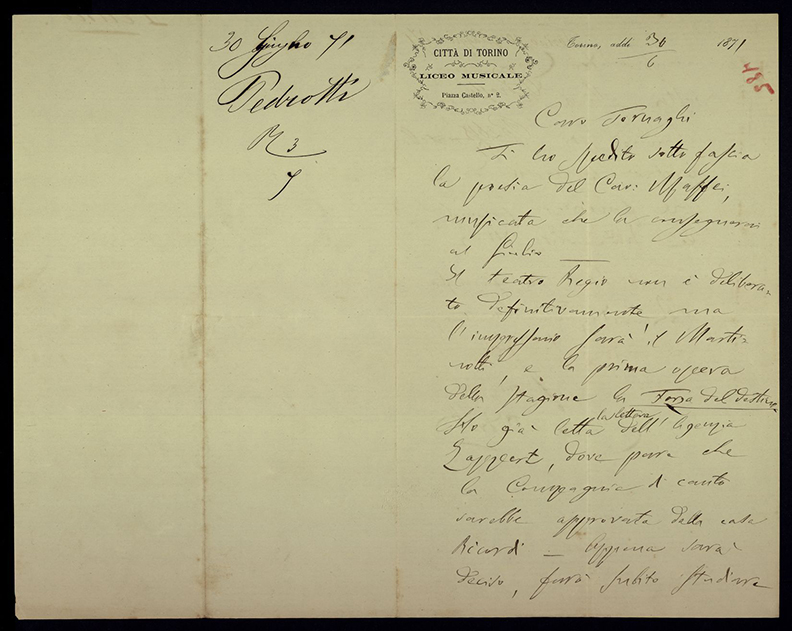 30 Giugno 71
Pedrotti
R 3
7
CITTÀ DI TORINO
LICEO MUSICALE
Piazza Castello, n° 2.
Torino, addì 30/6 1871
485
Caro Tornaghi
Ti ho spedito sotto fascia
la poesia del Cav: Maffei,
musicata che la consegnerai
al Giulio —
Il teatro Regio non è delibera-
to definitivamente ma
l'impressario sarà il Marti-
notti, e la prima opera
della stagione la Forza del destino
Ho già letta la lettera dell'Agenzia
Lappert, dove pare che
la Compagnia di canto
sarebbe approvata dalla casa
Ricordi — Appena sarà
deciso, farò subito studiare